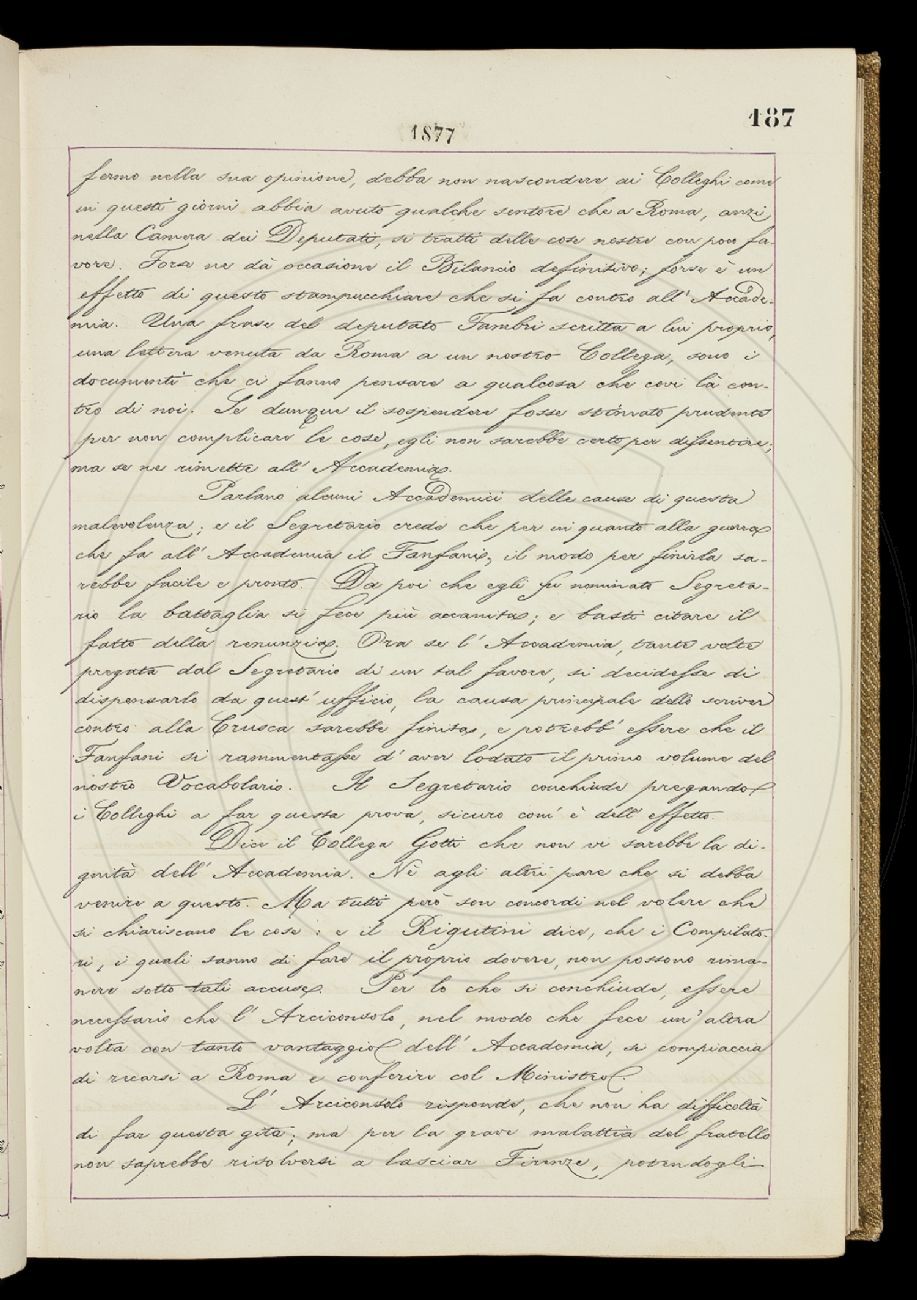 187
1877
fermo nella sua opinione, debba non nascondere ai Colleghi come
in questi giorni abbia avuto qualche sentore che a Roma, anzi
nella Camera dei Deputati, si tratti delle cose nostre con poco fa-
vore. Forse ne dà occasione il Bilancio definitivo; forse è un
effetto di questo stampucchiare che si fa contro all' Accade-
mia. Una frase del deputato Fambri scritta a lui proprio,
una lettera venuta da Roma a un nostro Collega, sono i
documenti che ci fanno pensare a qualcosa che covi là con-
tro di noi. Se dunque il sospendere fosse stimato prudente
per non complicare le cose, egli non sarebbe certo per dissentire;
ma se ne rimette all' Accademia.
Parlano alcuni Accademici delle cause di questa
malevolenza; e il Segretario crede che per in quanto alla guerra
che fa all' Accademia il Fanfani, il modo per finirla sa-
rebbe facile e pronto. Da poi che egli fu nominato Segreta-
rio la battaglia si fece più accanita; e basti citare il
fatto della renunzia. Ora se l' Accademia, tante volte
pregata dal Segretario di un tal favore, si decidesse di
dispensarlo da quest' ufficio, la causa principale dello scriver
contro alla Crusca sarebbe finita, e potrebb' essere che il
Fanfani si rammentasse d' aver lodato il primo volume del
nostro Vocabolario. Il Segretario conchiude pregando
i Colleghi a far questa prova, sicuro com' è dell' effetto.
Dice il Collega Gotti che non vi sarebbe la di-
gnità dell' Accademia. Nè agli altri pare che si debba
venire a questo. Ma tutti però son concordi nel volere che
si chiariscano le cose: e il Rigutini dice, che i Compilato-
ri, i quali sanno di fare il proprio dovere, non possono rima-
nere sotto tali accuse. Per lo che si conchiude, essere
necessario che l' Arciconsolo, nel modo che fece un' altra
volta con tanto vantaggio dell' Accademia, si compiaccia
di recarsi a Roma e conferire col Ministro.
L' Arciconsolo risponde, che non ha difficoltà
di far questa gita; ma per la grave malattia del fratello
non saprebbe risolversi a lasciar Firenze, potendogli